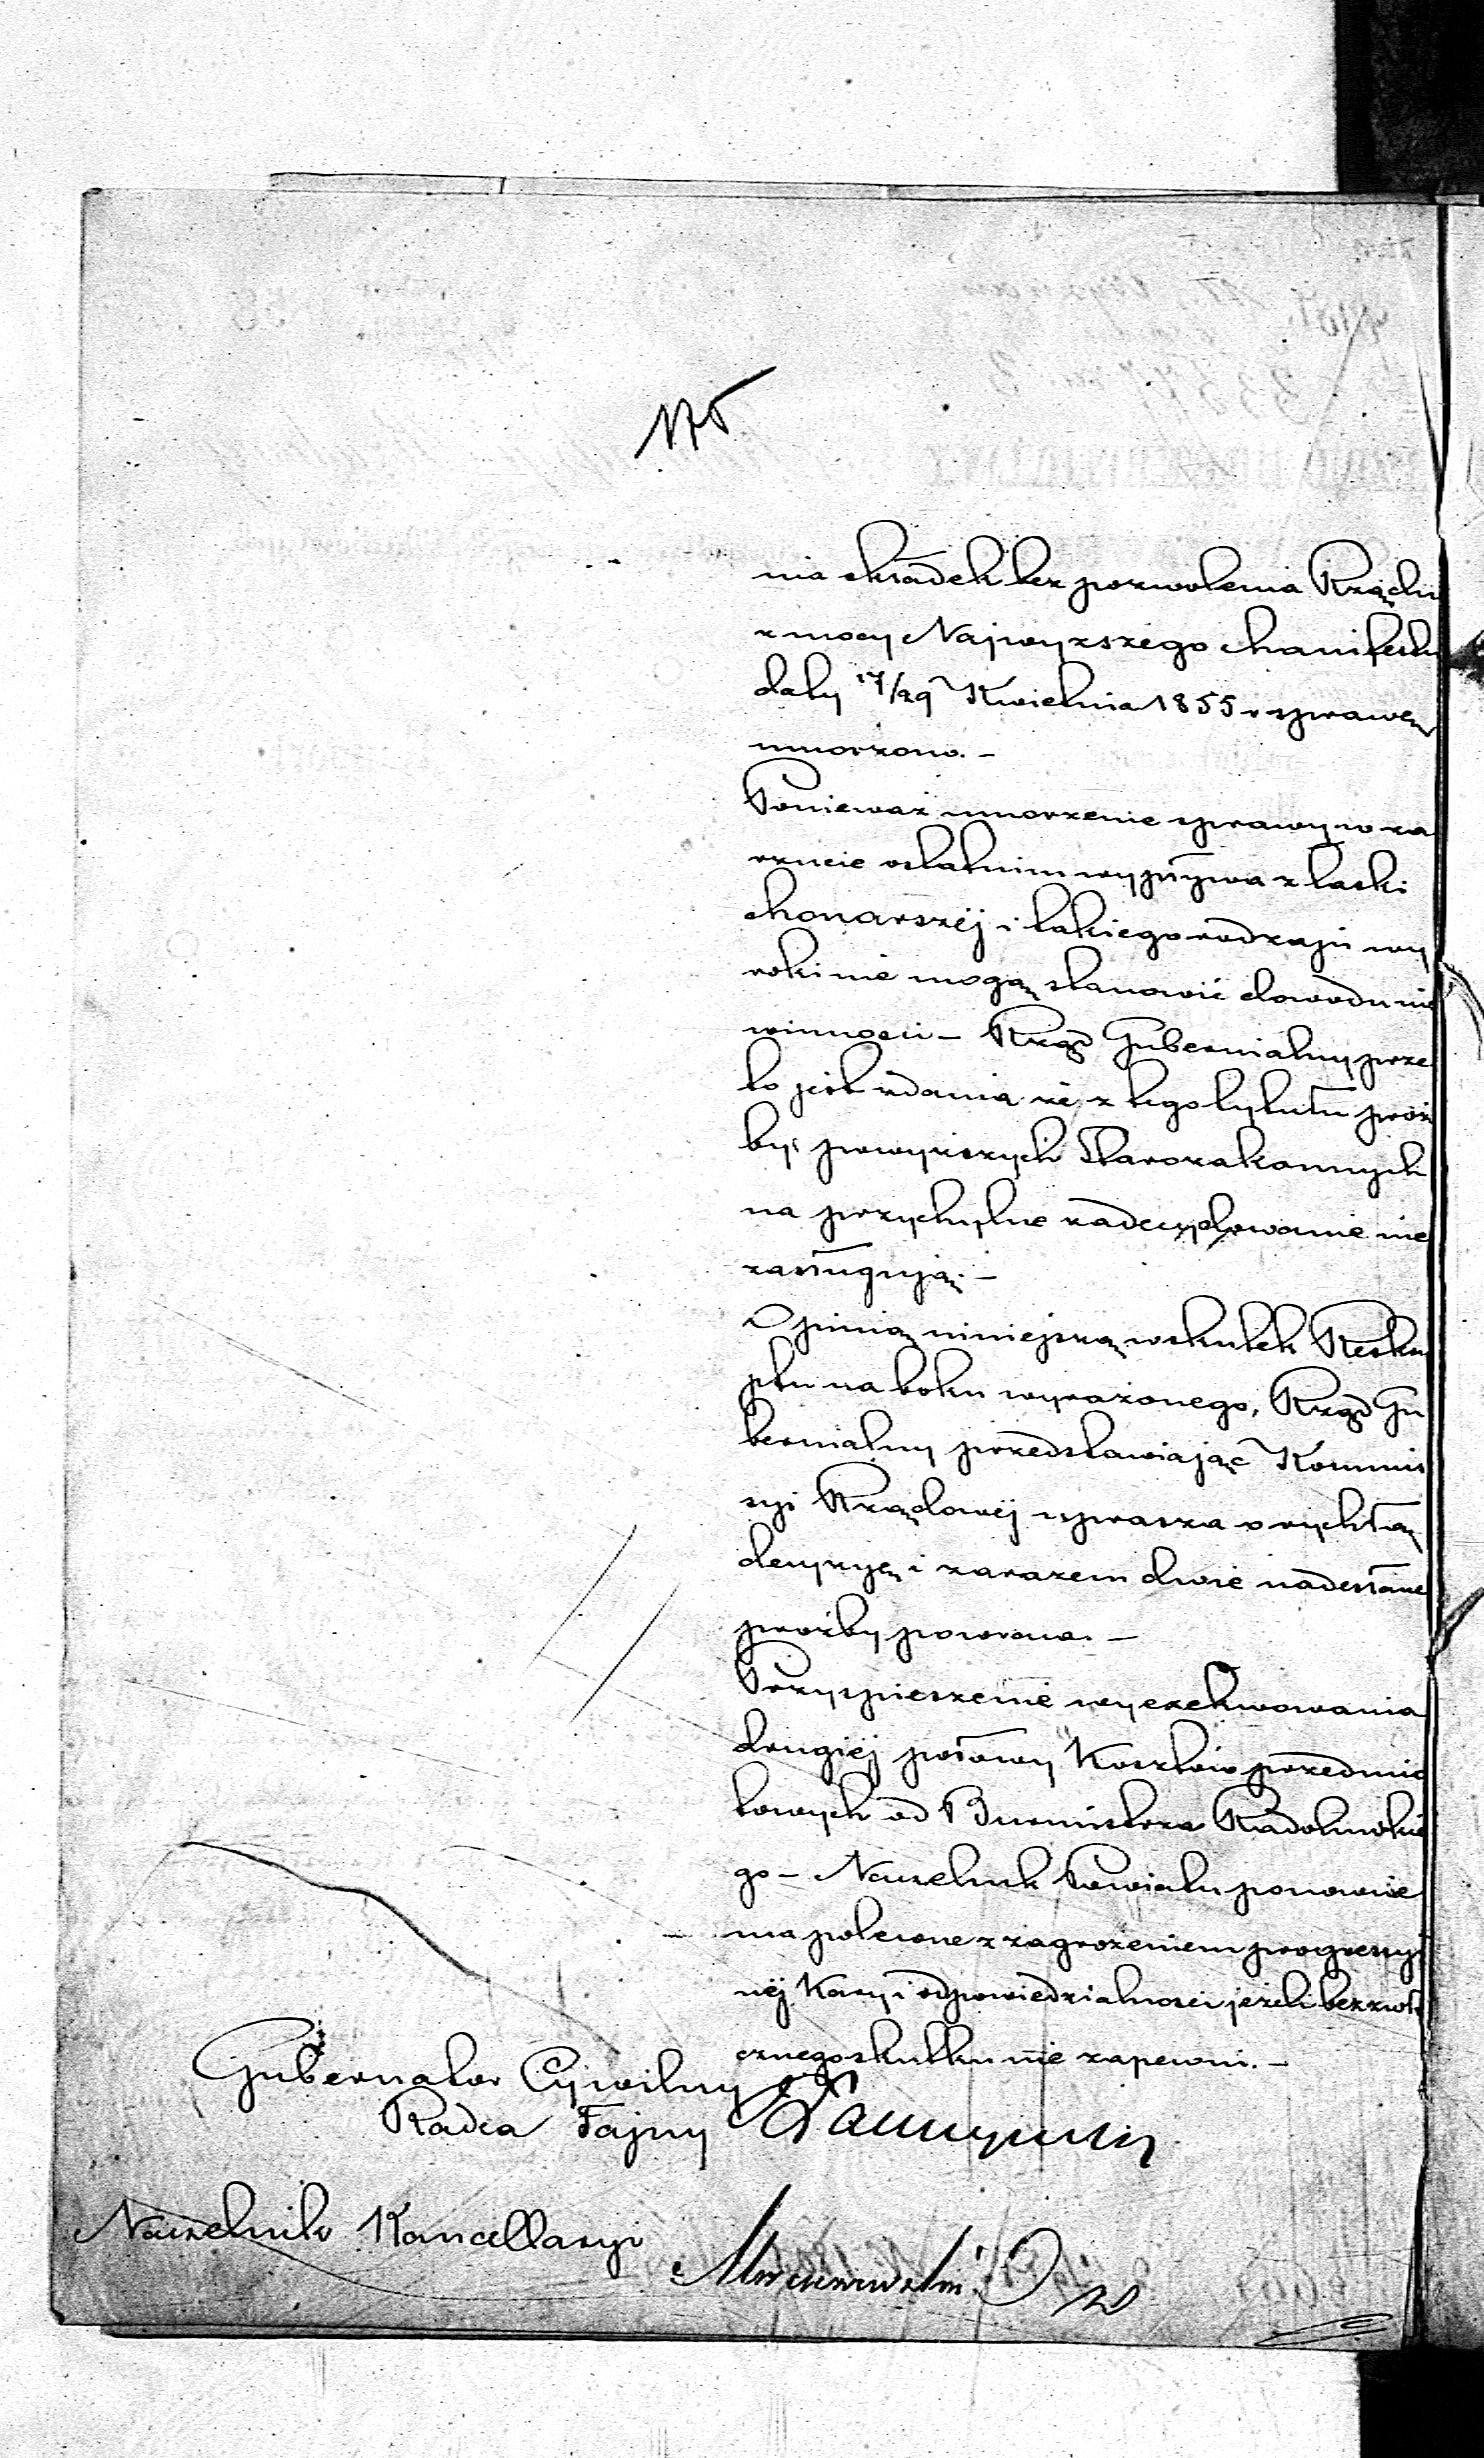 175
nia składek bez pozwolenia Rządu
z mocy Najwyzszego Manifestu
daty 17/29 Kwietnia 1855 r sprawę
umorzono. –
Ponieważ umorzenie sprawy w za
rzucie ostatnim wypływa z łaski
Monarszéj i takiego rodzaju wy
roki nie mogą stanowić dowodu nie
winnosci – Rząd Gubernialny prze
to jest zdania że z tego tytułu proź
by powyższych Starozakonnych
na przychylne zadecydowanie nie
zasługują. –
Opinią niniejszą wskutek Reskry
ptu na boku wyrażonego, Rząd Gu
bernialny przedstawiając Kommis
syi Rządowéj uprasza o rychłą
decyzyę i zarazem dwie nadesłane
proźby powraca. –
Przyspieszenie wyexekwowania
drugiéj połowy Kosztów przedmio
towych od Burmistrza Radolińskie
go – Naczelnik Powiatu ponownie
ma polecone z zagrożeniem progressyj
néj Kary i odpowiedzialnosci jeżeli bezzwło
cznego skutku nie zapewni. –
Gubernator Cywilny
Radca Tajny
Naczelnik Kancellaryi